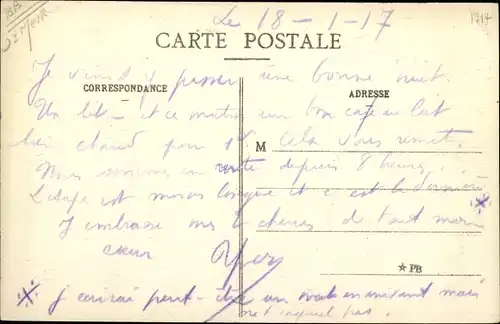 BB
Le 18-1-17
1717
CARTE POSTALE
Je viens d'y passer une bonne nuit.
CORRESPONDANCE
ADRESSE
Un lit - et ce matin un bon café au lait
bien chaud pour 1f. Cela vous remet.
M
Nous sommes en route depuis 8 heures.
L'étape est moins longue et c'est la dernière
J'embrasse mes chères de tout mon
cœur
☆PB
J'écrirai peut-être un mot en arrivant mais